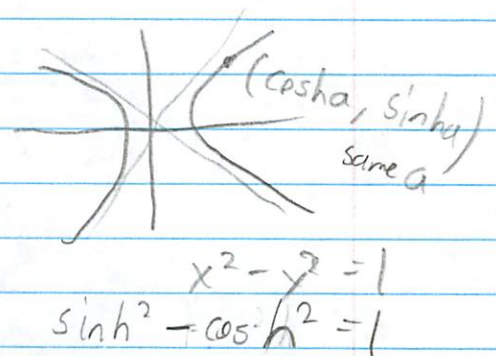 (cosha, sinha)
same a
x² - y² = 1
sinh² - cosh² = 1